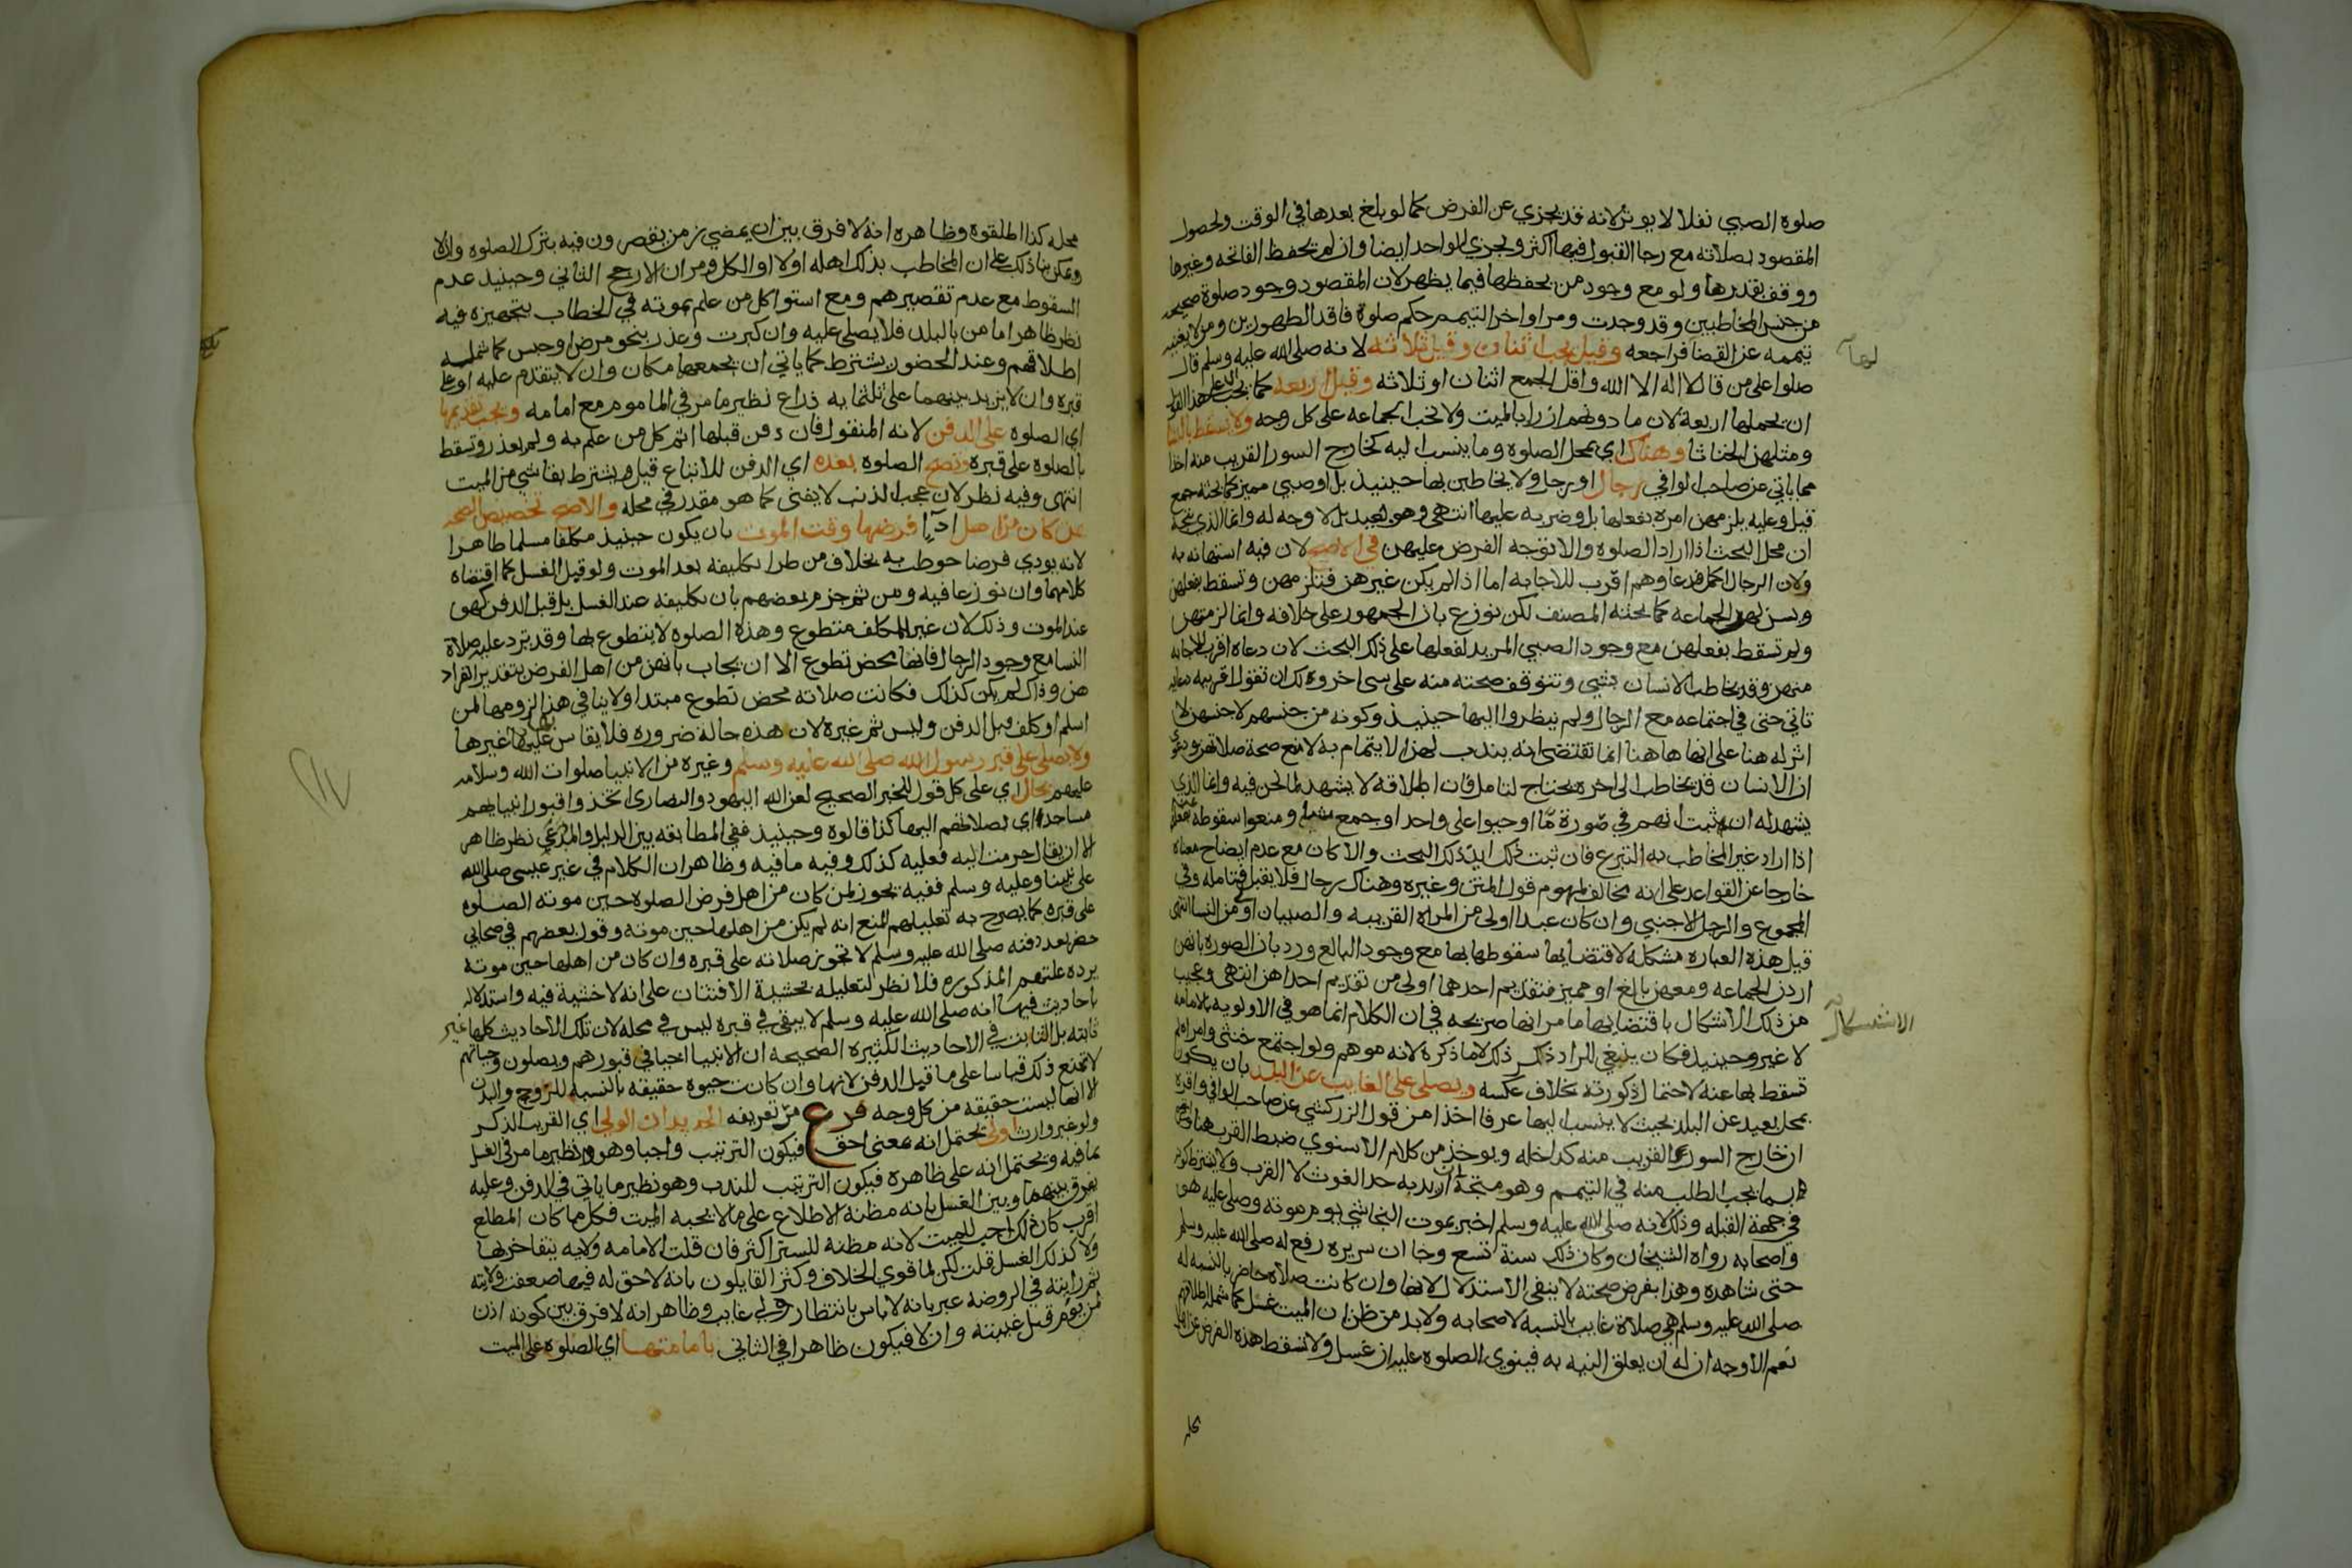 صلوة الصبي نفلا لا يوثر لانه قد يجزي عن الفرض كما لو بلغ بعدها في الوقت ولحصول
المقصود بصلاته مع رجا القبول فيها اكثر ويجزي الواحد ايضا وان لم يحفظ الفاتحه وغيرها
ووقف بقدرها ولو مع وجود من يحفظها فيما يظهر لان المقصود وجود صلوة صحيحه
من جنس المخاطبين وقد وجدت ومر اواخر التيمم حكم صلوة فاقد الطهورين ومن لا يغنيه
تيممه عن القضا فراجعه وقيل يجب اثنان وقيل ثلاثه لانه صلى الله عليه وسلم قال
صلوا على من قال لا اله الا الله واقل الجمع اثنان او ثلاثه وقيل اربعه كما يجب
ان يحملها اربعة لان ما دونهم ازرا بالميت ولا تجب الجماعه على كل وجه ولا تسقط بالنسا
ومثلهن الخناثا وهناك اي بمحل الصلوه وما ينسب اليه كخارج السور القريب منه اخذا
مما ياتي عن صاحب الوافي رجال او رجل ولا يخاطبن بها حينيذ بل او صبي مميز كما بحثه جمع
قيل وعليه يلزمهن امره بفعلها بل وضربه عليها انتهى وهو بعيد بل لا وجه له وانما الذي يتجه
ان محل البحث اذا اراد الصلوه والا توجه الفرض عليهن في الاصح لان فيه استهانه به
ولان الرجال اكمل فدعاوهم اقرب للاجابه اما اذا لم يكن غيرهن فتلزمهن وتسقط بفعلهن
ويسن لهن الجماعه كما بحثه المصنف لكن نوزع بان الجمهور على خلافه وانما لزمتهن
ولم تسقط بفعلهن مع وجود الصبي المريد لفعلها على ذلك البحث لان دعاه اقرب للاجابه
منهن وقد يخاطب الانسان بشي وتتوقف صحته منه على شي اخر
تاتي حتى في اجتماعه مع الرجال ولم ينظروا اليها حينيذ وكونه من جنسهم لا جنسهن لا
اثر له هنا على انها هاهنا انما تقتضي انه يندب لهن الايتمام به لا منع صحة صلاتهن
ان الانسان قد يخاطب الى اخره يحتاج لتامل فان اطلاقه لا يشهد لما نحن فيه وانما الذي
يشهد له ان ثبت انهم في صورة مّا اوجبوا على واحد او جمع ومنعوا سقوطه
اذا اراد غير المخاطب به التبرع فان ثبت ذلك ايد ذلك البحث والا كان مع عدم ايضاح معناه
خارجا عن القواعد على انه مخالف لمفهوم قول المتن وغيره وهناك رجال فلا يقبل فتامله وفي
المجموع والرجل الاجنبي وان كان عبدا اولى من المراه القريبه والصبيان اولى من النسا انتهى
قيل هذه العباره مشكله لاقتضايها سقوطها بها مع وجود البالغ ورد بان الصوره بانهن
اردن الجماعه ومعهن بالغ او مميز فتقديم احدهما اولى من تقديم احداهن انتهى وعجيب
من ذلك الاشكال باقتضايها ما مر انها صريحه في ان الكلام انما هو في الاولويه بالامامه
لا غير وحينيذ فكان ينبغي للراد ذكر ذلك لا ما ذكره لانه موهم ولو اجتمع خنثى وامراه لم
تسقط بها عنه لاحتمال ذكورته بخلاف عكسه ويصلى على الغايب عن البلد بان يكون
بمحل بعيد عن البلد بحيث لا ينسب اليها عرفا اخذا من قول الزركشي عن صاحب الوافي واقره
ان خارج السور القريب منه كداخله ويوخذ من كلام الاسنوي ضبط القرب هنا
بما يجب الطلب منه في التيمم وهو متجه ان اريد به حد الغوث لا القرب ولا يشترط كونه
في جهة القبله وذلك لانه صلى الله عليه وسلم اخبر بموت النجاشي يوم موته وصلى عليه هو
واصحابه رواه الشيخان وكان ذلك سنة تسع وجا ان سريره رفع له صلى الله عليه وسلم
حتى شاهده وهذا بفرض صحته لا ينفي الاستدلال لانها وان كانت صلاة حاضر بالنسبه له
صلى الله عليه وسلم هي صلاة غايب بالنسبه لاصحابه ولا بد من ظن ان الميت غسل كما شمله اطلاقهم
نعم الاوجه ان له ان يعلق النيه به فينوي الصلوه عليه ان غسل ولا تسقط هذه الفرض عن
لها
الاشكال
محله كذا اطلقوه وظاهره انه لا فرق بين ان يمضي زمن يقصرون فيه بترك الصلوه وان لا
ويمكن بنا ذلك على ان المخاطب بذلك اهله اولا او الكل ومر ان الارجح الثاني وحينيذ عدم
السقوط مع عدم تقصيرهم ومع استوا كل من علم بموته في الخطاب بتجهيزه فيه
نظر ظاهر اما من بالبلد فلا يصلى عليه وان كبرت وعذر بنحو مرض او حبس كما شمله
اطلاقهم وعند الحضور يشترط كما ياتي ان يجمعهما مكان وان لا يتقدم عليه او على
قبره وان لا يزيد بينهما على ثلثمايه ذراع نظير ما مر في الماموم مع امامه ويجب تقديمها
اي الصلوه على الدفن لانه المنقول فان دفن قبلها اثم كل من علم به ولم يعذر وتسقط
بالصلوه على قبره وتصح الصلوه بعده اي الدفن للاتباع قيل ويشترط بقا شي من الميت
انتهى وفيه نظر لان عجب الذنب لا يفنى كما هو مقدر في محله والاصح تخصيص الصحه
بمن كان من اهل ادآ فرضها وقت الموت بان يكون حينيذ مكلفا مسلما طاهرا
لانه يودي فرضا خوطب به بخلاف من طرا تكليفه بعد الموت ولو قبل الغسل كما اقتضاه
كلامهما وان نوزعا فيه ومن ثم جزم بعضهم بان تكليفه عند الغسل بل قبل الدفن كهو
عند الموت وذلك لان غير المكلف متطوع وهذه الصلوه لا يتطوع بها وقد ترد عليه صلاة
النسا مع وجود الرجال فانها محض تطوع الا ان يجاب بانهن من اهل الفرض بتقدير انفراد
هن وذاك لم يكن كذلك فكانت صلاته محض تطوع مبتدا ولا ينافي هذا لزومها لمن
اسلم او كلف قبل الدفن وليس ثم غيره لان هذه حالة ضروره فلا يقاس عليها غيرها
ولا يصلى على قبر رسول الله صلى الله عليه وسلم وغيره من الانبيا صلوات الله وسلامه
عليهم بحال اي على كل قول للخبر الصحيح لعن الله اليهود والنصارى اتخذوا قبور انبيايهم
مساجد اي بصلاتهم اليها كذا قالوه وحينيذ ففي المطابقه بين الدليل والمدعى نظر ظاهر
الا ان يقال حرمت اليه فعليه كذلك وفيه ما فيه وظاهر ان الكلام في غير عيسى صلى الله
على نبينا وعليه وسلم ففيه يجوز لمن كان من اهل فرض الصلوه حين موته الصلوه
على قبره كما يصرح به تعليلهم المنع انه لم يكن من اهلها حين موته وقول بعضهم في صحابي
حضر بعد دفنه صلى الله عليه وسلم لا تجوز صلاته على قبره وان كان من اهلها حين موته
يرده علتهم المذكوره فلا نظر لتعليله بخشية الافتتان على انه لا خشية فيه واستدلاله
باحاديث فيها انه صلى الله عليه وسلم لا يبقى في قبره ليس في محله لان تلك الاحاديث كلها غير
ثابته بل الثابت في الاحاديث الكثيره الصحيحه ان الانبيا احيا في قبورهم ويصلون وحياتهم
لا تمنع ذلك قياسا على ما قبل الدفن لانها وان كانت حيوه حقيقه بالنسبه للروح والبدن
الا انها ليست حقيقه من كل وجه فرع مرّ تعريفه الجديد ان الولي اي القريب الذكر
ولو غير وارث اولى يحتمل انه بمعنى احق فيكون الترتيب واجبا وهو نظير ما مر في الغسل
بما فيه ويحتمل انه على ظاهره فيكون الترتيب للندب وهو نظير ما ياتي في الدفن وعليه
يفرق بينهما وبين الغسل بانه مظنة الاطلاع على ما لا يحبه الميت فكل ما كان المطلع
اقرب كان ذلك احب للميت لانه مظنه للستر اكثر فان قلت الامامه ولايه يتفاخر بها
ولا كذلك الغسل قلت لكن لما قوي الخلاف وكثر القايلون بانه لا حق له فيها ضعفت ولايته
ثم رايته في الروضه عبر بانه لا باس بانتظار ولي غايب وظاهر انه لا فرق بين كونه اذن
لمن يوم قبل غيبته وان لا فيكون ظاهرا في الثاني بامامتها اي الصلوه على الميت